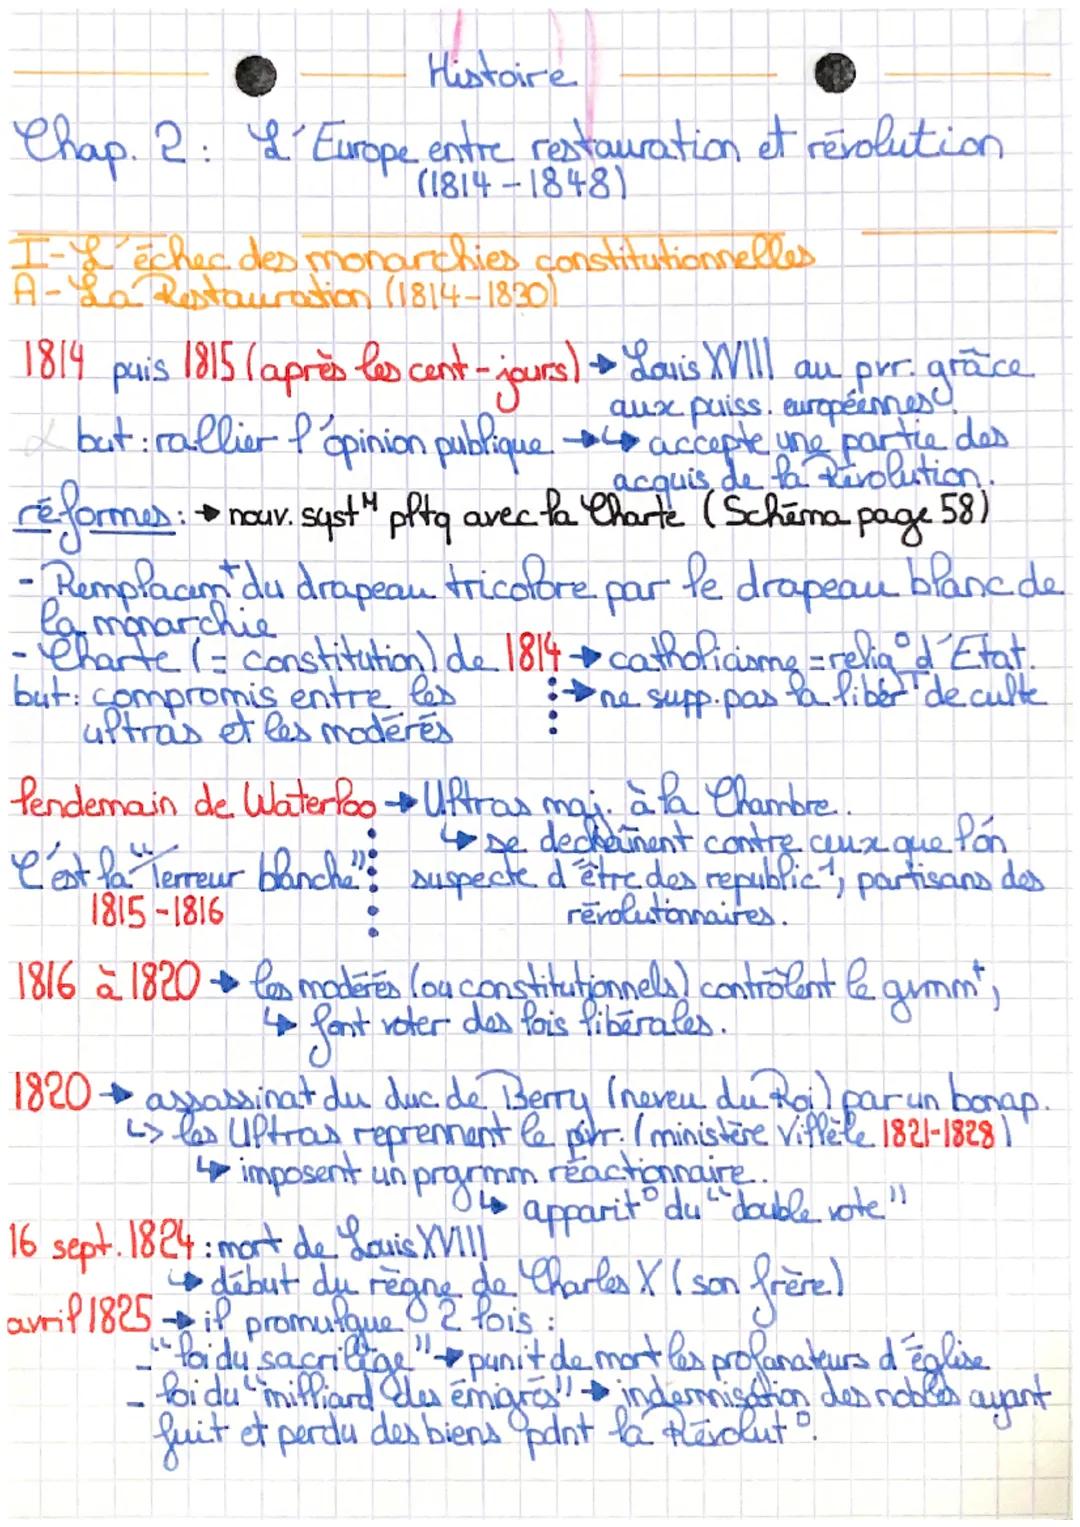 Histoire
Chap. 2 : L'Europe entre restauration et révolution
(1814-1848)
I- L'échec des monarchies constitutionnelles
A- La Restauration (1814-1830)
1814 puis 1815 (après les cent-jours) → Louis XVIII au pvr. grâce
aux puiss. européennes.
but : rallier l'opinion publique →↳ accepte une partie des
acquis de la Révolution.
réformes : → nouv. systᴹ pltq avec la Charte (Schéma page 58)
- Remplacemᵗ du drapeau tricolore par le drapeau blanc de
la monarchie
- Charte (= constitution) de 1814 → catholicisme = relig° d'Etat.
but : compromis entre les → ne supp. pas la liberᵀ de culte
ultras et les modérés
lendemain de Waterloo → Ultras maj. à la Chambre.
↳ se dechaînent contre ceux que l'on
C'est la "Terreur blanche" : suspecte d'être des republic¹, partisans des
1815-1816 révolutionnaires.
1816 à 1820 → les modérés (ou constitutionnels) contrôlent le gvmmᵗ,
↳ font voter des lois libérales.
1820 → assassinat du duc de Berry (neveu du Roi) par un bonap.
↳ les Ultras reprennent le pvr. (ministère Villèle 1821-1828)
↳ imposent un prgrmm réactionnaire.
↳ apparit° du "double vote"
16 sept. 1824 : mort de Louis XVIII
↳ début du règne de Charles X (son frère)
avril 1825 → il promulgue 2 lois :
- "loi du sacrilège" → punit de mort les profanateurs d'église
- loi du "milliard des émigrés" → indemnisation des nobles ayant
fuit et perdu des biens pdnt la Révolut°.